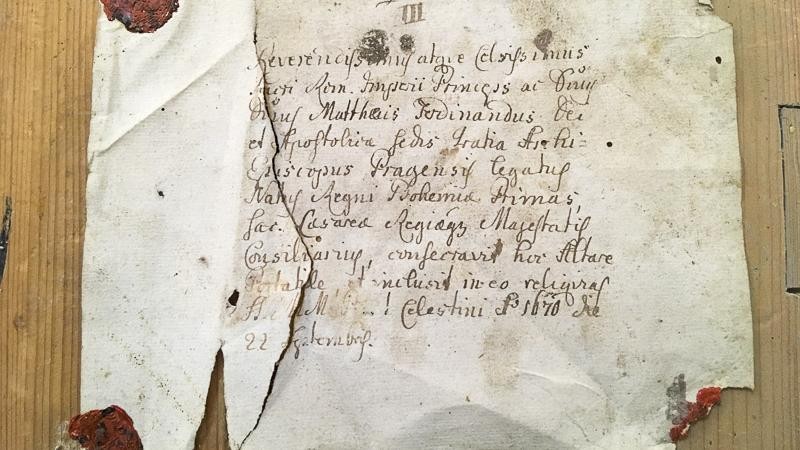 III
Reverendissimus atque Celsissimus
Sacri Rom. Imperii Princeps ac Dnus
Dnus Matthæis Ferdinandus Dei
et Apostolica Sedis Gratia Archi-
Episcopus Pragensis legatus
Natus Regni Bohemiæ Primas,
Sac. Cæsareæ Regiæqz Majestatis
Consiliarius, consecravit hoc Altare
Portatile, et inclusit in eo reliquias
Celestini Ao 1670 die
22 Septembris.